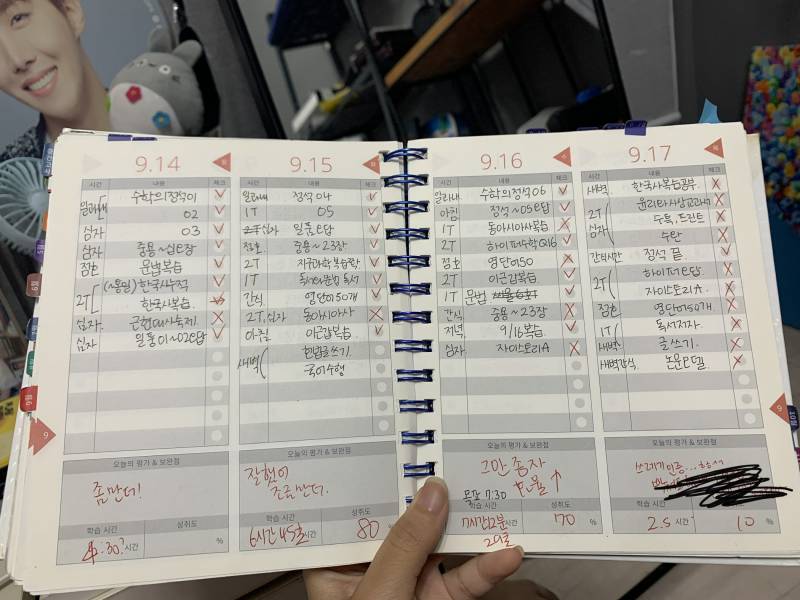 9.14
시간 내용 체크
수학의정석 01
02
심자 03
심자 중용~ 오답
점호 문법복습
2T
한국사복습
심자 근현대사숙제
심자 일품 01~02오답
오늘의 평가 & 보완점
좀만더!
학습 시간 성취도
4:30? 시간 %
9.15
시간 내용 체크
정석 04
1T 05
심자 일품 오답
점호 중용~23장
2T 지구과학 복습
1T 독서
간식 영단어50개
2T, 심자 동아시아사
아침 이근갑복습
새벽 헌법글쓰기
국어수행
오늘의 평가 & 보완점
잘했어
조금만더.
학습 시간 성취도
6시간 45분 80 %
9.16
시간 내용 체크
수학의정석 06
아침 정석~05오답
1T 동아시아사복습
2T 하이퍼수학Q16
점호 영단어50
2T 이근갑복습
1T 문법
간식 중용~23장
저녁 9/16복습
심자 자이스토리A
오늘의 평가 & 보완점
그만 좀자
학습 시간 성취도
7시간 2분 70 %
9.17
시간 내용 체크
새벽 한국사복습공부
2T 윤리와사상교과서
심자 수특, 프린트
수탄
정석 끝.
2T 하이퍼오답
자이스토리A.
점호 영단어50개
1T 독서저자.
새벽 글쓰기.
새벽간식 논문모델.
오늘의 평가 & 보완점
학습 시간 성취도
2.5 시간 10 %
9
9